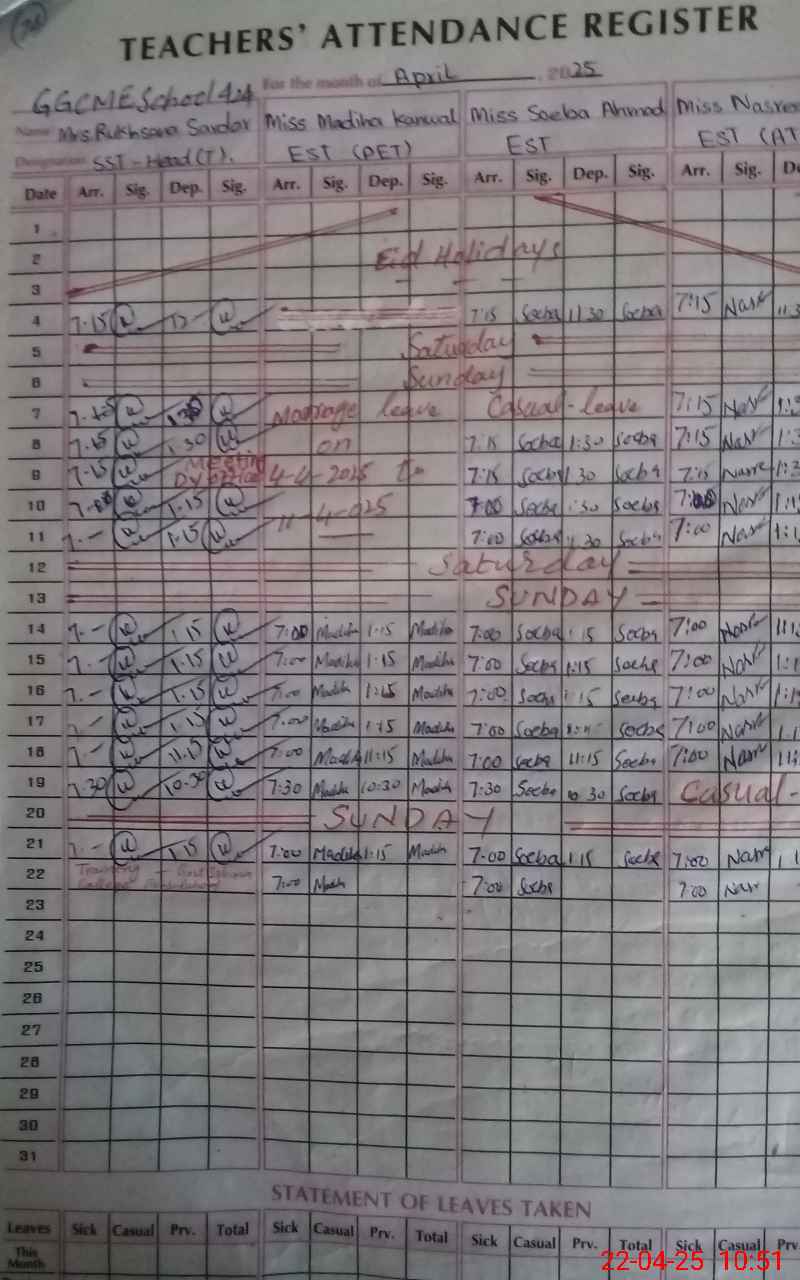 TEACHERS' ATTENDANCE REGISTER
For the month of April, 2025
GGCMESchool
Name Mrs. Rukhsana Sardar Miss Madiha Kanwal Miss Saeba Ahmad Miss Nasree
Designation SST-Head(T). EST (PET) EST EST (AT
Date Arr. Sig. Dep. Sig. Arr. Sig. Dep. Sig. Arr. Sig. Dep. Sig. Arr. Sig. De
1
2 Eid Holidays
3
4 7.15 7:15 Saeba 11 30 Saeba 7:15 Nasr 11:3
5 Saturday
6 Sunday
7 Marrage leave Casual-leave 7:15 Nasr
8 7.15 1.30 on 7:15 Saeba 1:30 Saeba 7:15 Nasr 1:3
9 7.15 Meeting Dy office 4-4-2025 to 7:15 Saeba 1 30 Saeba 7:15 Nasre 1:3
10 1.15 11-4-025 7:00 Saeba 1:30 Saeba 7:00 Nasr
11 7.- 1.15 7:00 Saeba 1 30 Saeba 7:00 Nasr
12 Saturday
13 SUNDAY
14 7.- 1.15 7:00 Madiha 1:15 Madiha 7:00 Saeba 1:15 Saeba 7:00 Nasr
15 7.- 1.15 7:00 Madiha 1:15 Madiha 7:00 Saeba 1:15 Saeba 7:00 Nasr
16 7.- 1.15 7:00 Madiha 1:15 Madiha 7:00 Saeba 1:15 Saeba 7:00 Nasr
17 7.- 1.15 7:00 Madiha 1:15 Madiha 7:00 Saeba Saeba 7:00 Nasr
18 7.- 11.15 7:00 Madiha 11:15 Madiha 7:00 Saeba 11:15 Saeba 7:00 Nasr
19 7.30 10-30 7:30 Madiha 10:30 Madiha 7:30 Saeba 10 30 Saeba Casual-
20 SUNDAY
21 7.- 1.15 7:00 Madiha 1:15 Madiha 7:00 Saeba 1:15 Saeba 7:00 Nasr
22 Training 7:00 Madiha 7:00 Saeba 7:00 Nasr
23
24
25
26
27
28
29
30
31
STATEMENT OF LEAVES TAKEN
Leaves Sick Casual Prv. Total Sick Casual Prv. Total Sick Casual Prv. Total Sick Casual Prv
This Month
22-04-25 10:51